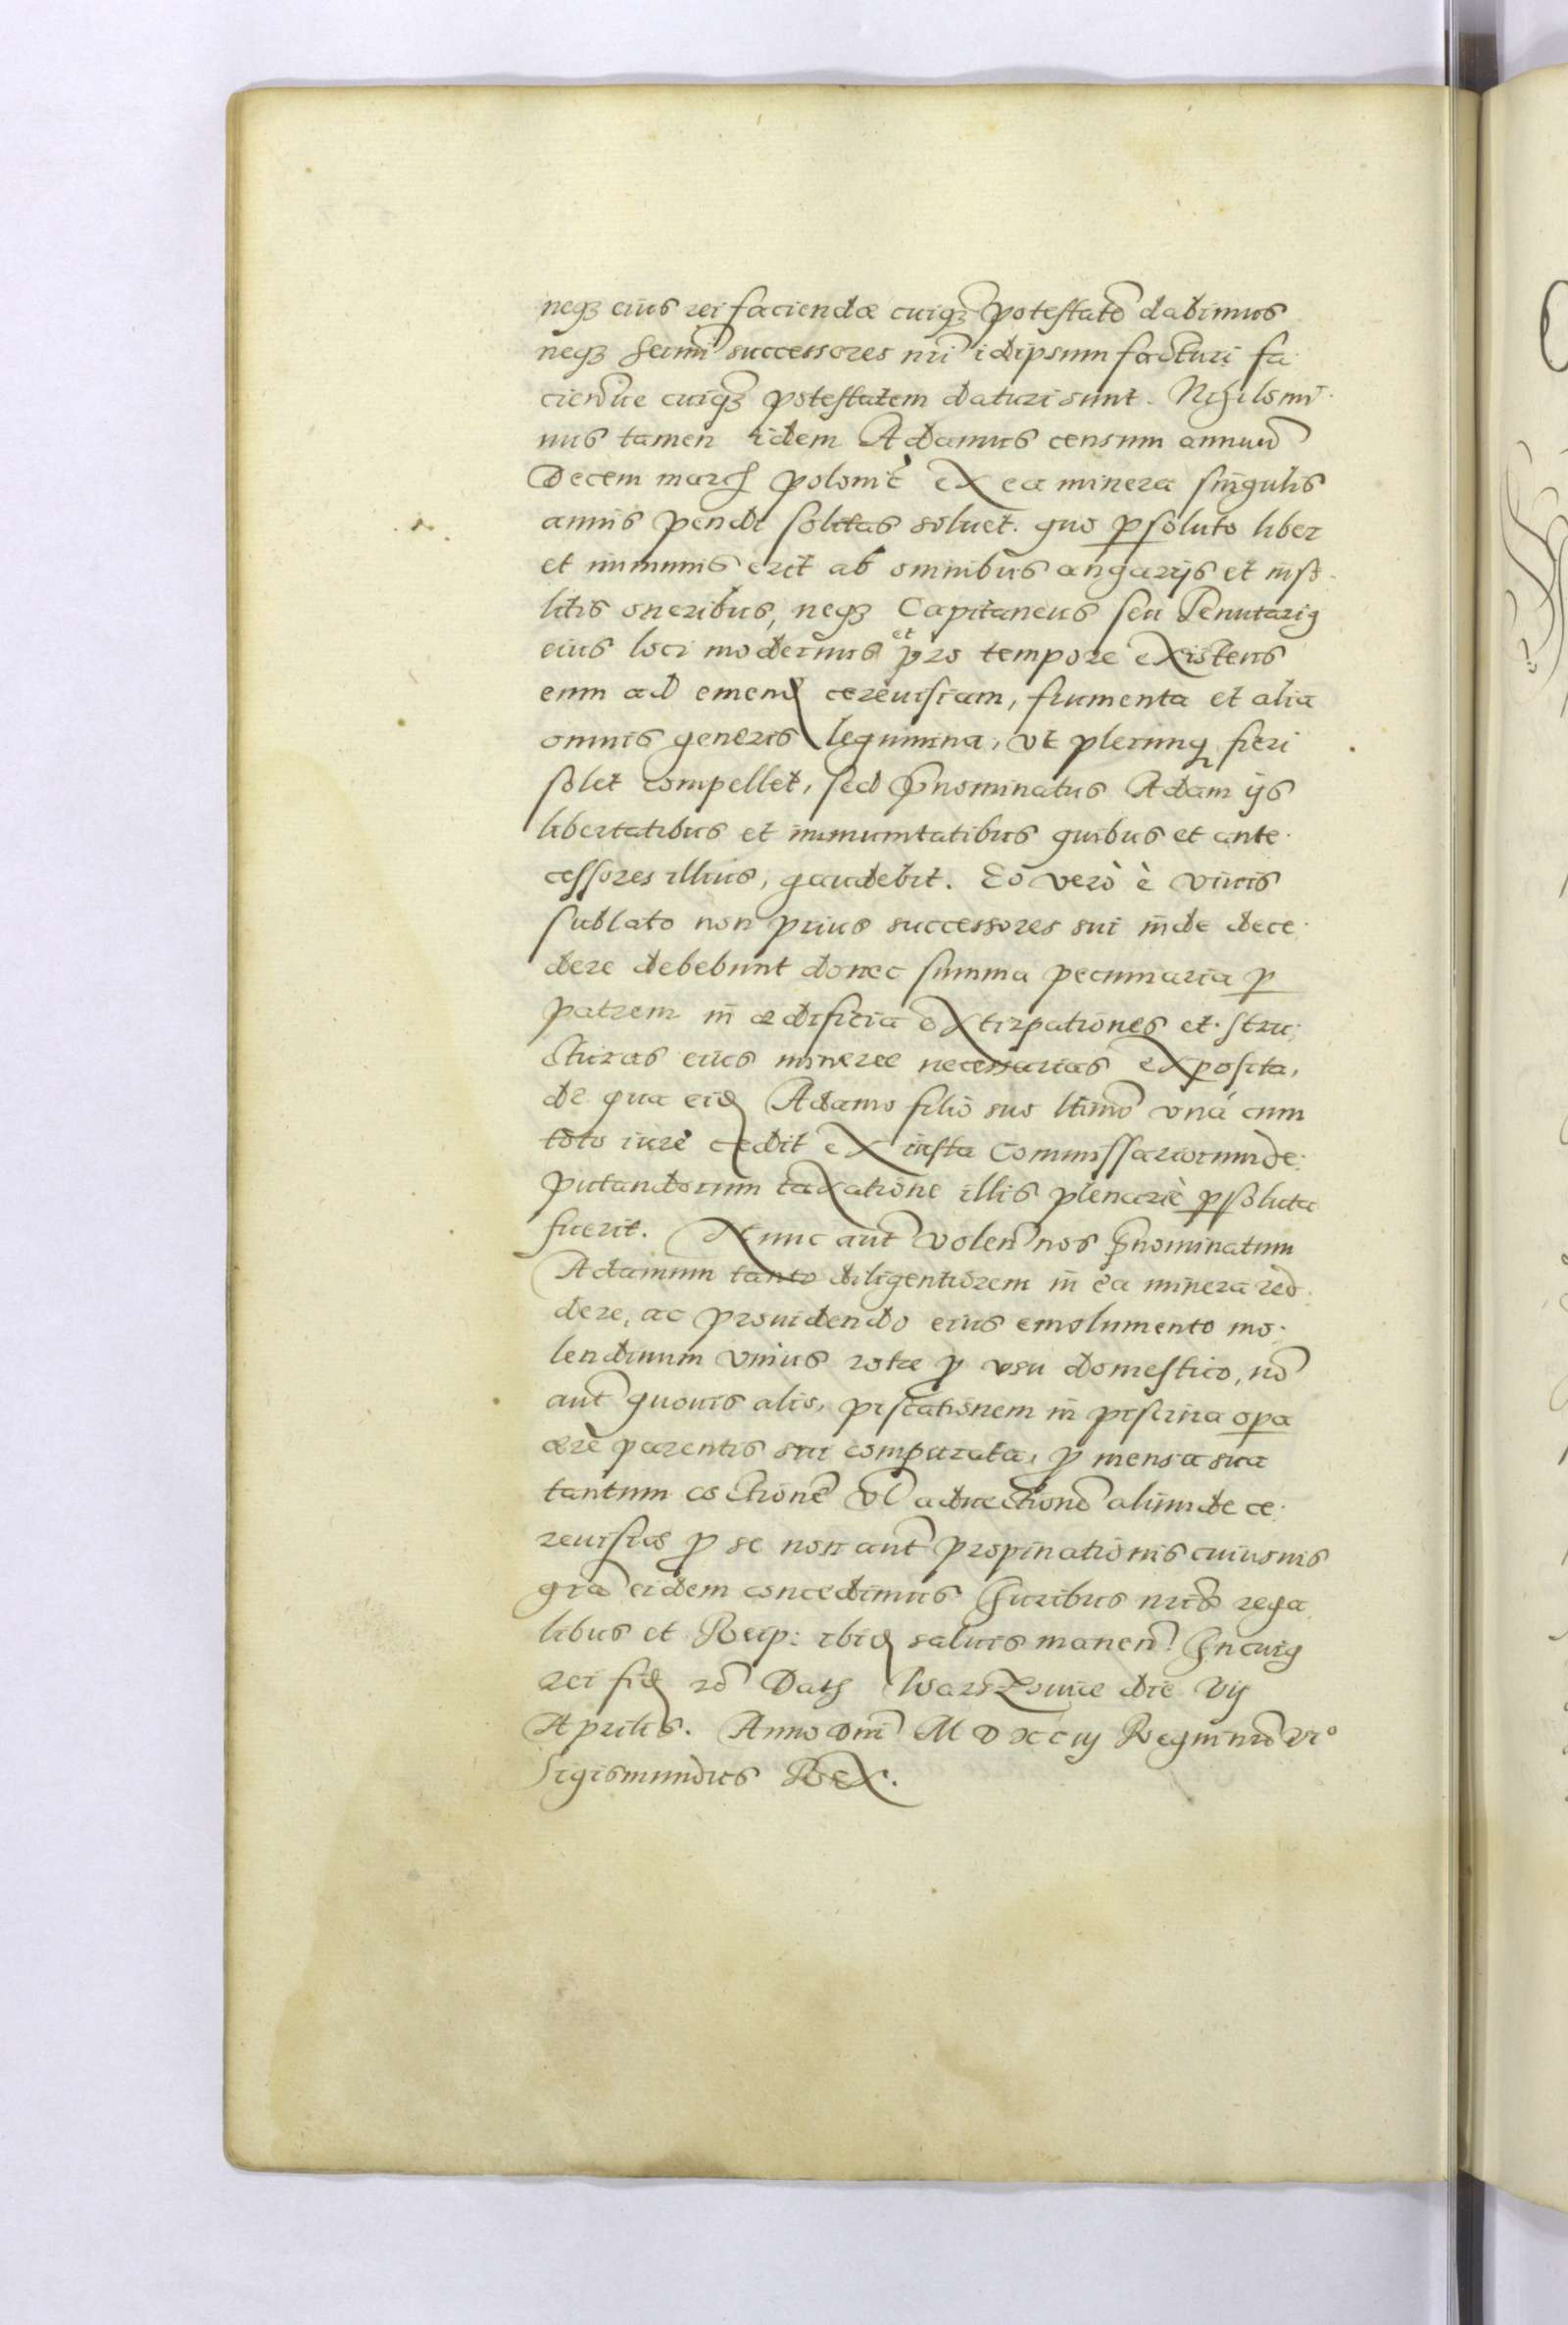 neq₃ eius rei faciendæ cuiq₃ potestatē dabimus
neq₃ Sermi successores nri idipsum facturi fa
ciendive cuiq₃ potestatem daturi sunt. Nihilomi-
nus tamen idem Adamus censum annuū
Decem march polonic ex ea minera singulis
annis pendi solitas soluet. quo p̱soluto liber
et immunis erit ab omnibus angarijs et inso-
litis oneribus, neq₃ Capitaneus seu Tenutarig
eius loci modernus et pro tempore existens
eum ad emend cereuisiam, frumenta et alia
omnis generis legumina, vt plerunq fieri
solet compellet, sed p̄nominatus Adam ijs
libertatibus et immunitatibus quibus et ante-
cessores illius, gaudebit. Eo verò è viuis
sublato non prius successores sui inde dece-
dere debebunt donec summa pecuniaria p̱
patrem in ædificia extirpationes et stru-
cturas eius mineræ necessarias exposita,
de qua eid Adamo filio suo ltimo vnà cum
toto iure cedit ex iusta Commissariorum de-
putandorum taxatione illis plenariè p̱soluta
fuerit. Nunc aut volen nos p̄nominatum
Adamum tanto diligentiorem in ea minera red-
dere, ac prouidendo eius emolumento mo-
lendinum vnius rotæ p usu domestico, nō
aut quouis alio, piscationem in piscina opa
ære parentis sui comparata, p mensa sua
tantum coctionē vl aductionē aliunde ce-
reuisiæ p se non aut propinationis cuiusuis
gra eidem concedimus Juribus nris rega
libus et Reip: ibid saluis manen. In cuig
rei fid rō Dath Warszouiæ die Vij
Aprilis. Anno Dni M D XC iij Regni nrō vi°
Sigismundus Rex.